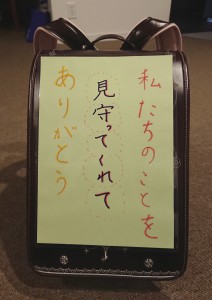 私たちのことを
見守ってくれて
ありがとう